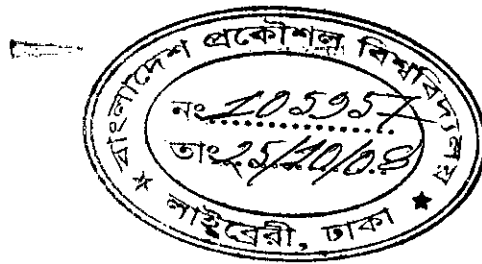 বাংলাদেশ প্রকৌশল বিশ্ববিদ্যালয়
নং 105957
তাং 25/10/08
লাইব্রেরী, ঢাকা